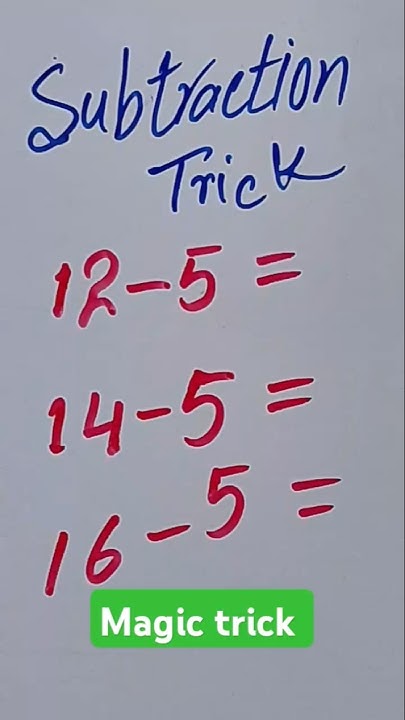 Subtraction
Trick
12-5=
14-5=
16-5=
Magic trick